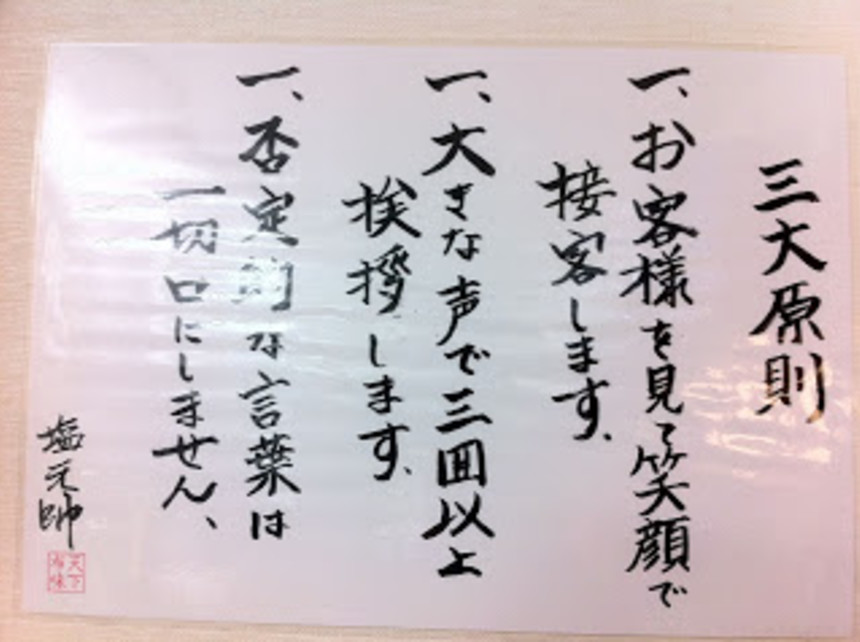 三大原則
一、お客様を見て笑顔で
接客します、
一、大きな声で三回以上
挨拶します、
一、否定的な言葉は
一切口にしません、
塩元帥